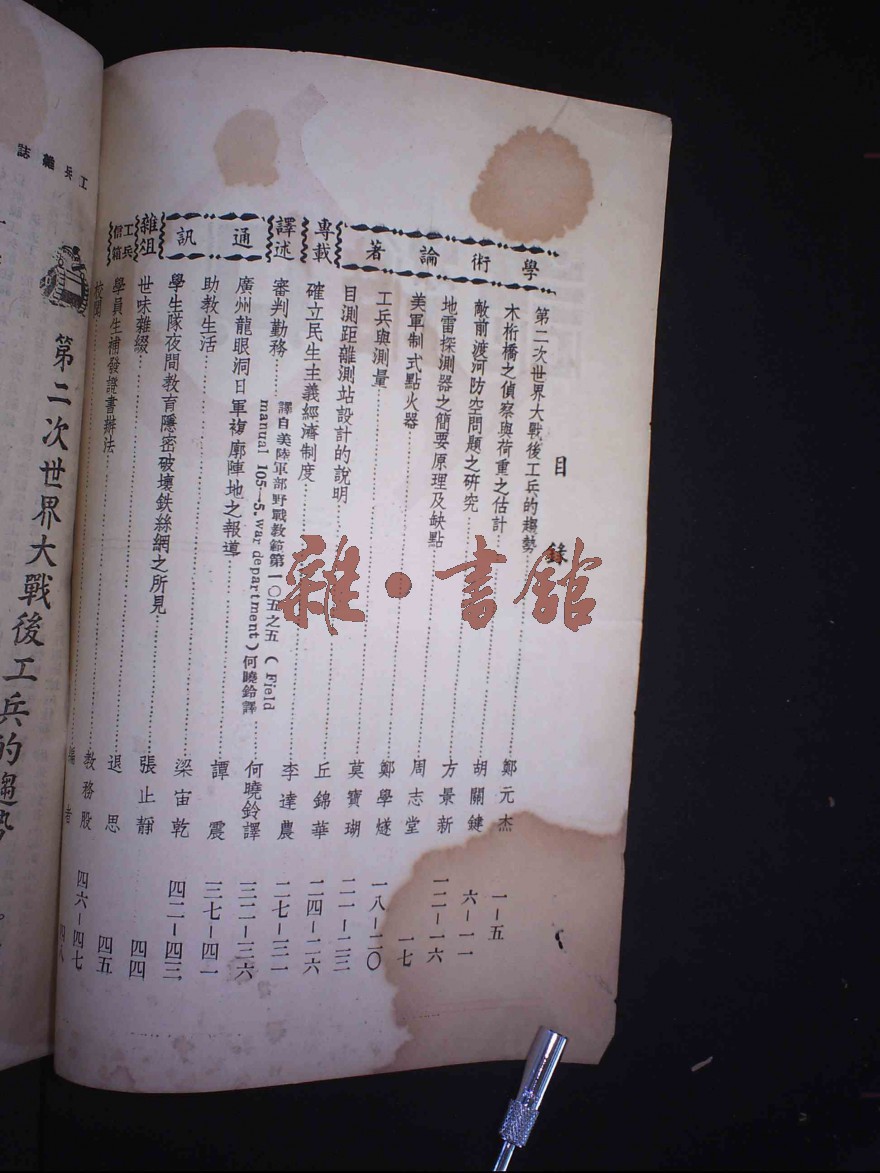 目錄
學術論著
第二次世界大戰後工兵的趨勢……鄭元杰 一—五
木桁橋之偵察與荷重之估計……胡關鍵 六—一一
敵前渡河防空問題之研究……方景新 一二—一六
地雷探測器之簡要原理及缺點……周志堂 一七
美軍制式點火器……鄭學燧 一八—二〇
工兵與測量……莫寶瑚 二一—二三
目測距離測站設計的說明……丘錦華 二四—二六
專載
確立民生主義經濟制度……李達農 二七—三一
譯述
審判勤務……何曉鈴譯 三二—三六
譯自美陸軍部野戰教範第一〇五之五(Field
manual 105—5. war department)何曉鈴譯
通訊
廣州龍眼洞日軍複廓陣地之報導……譚震 三七—四一
助教生活……梁宙乾 四二—四三
學生隊夜間教育隱密破壞鉄絲網之所見……張止靜 四四
雜俎
世味雜綴……退思 四五
工兵信箱
學員生補發證書辦法……教務股 四六—四七
校聞……編者 四八
工兵雜誌
第二次世界大戰後工兵的趨勢
雜·書館